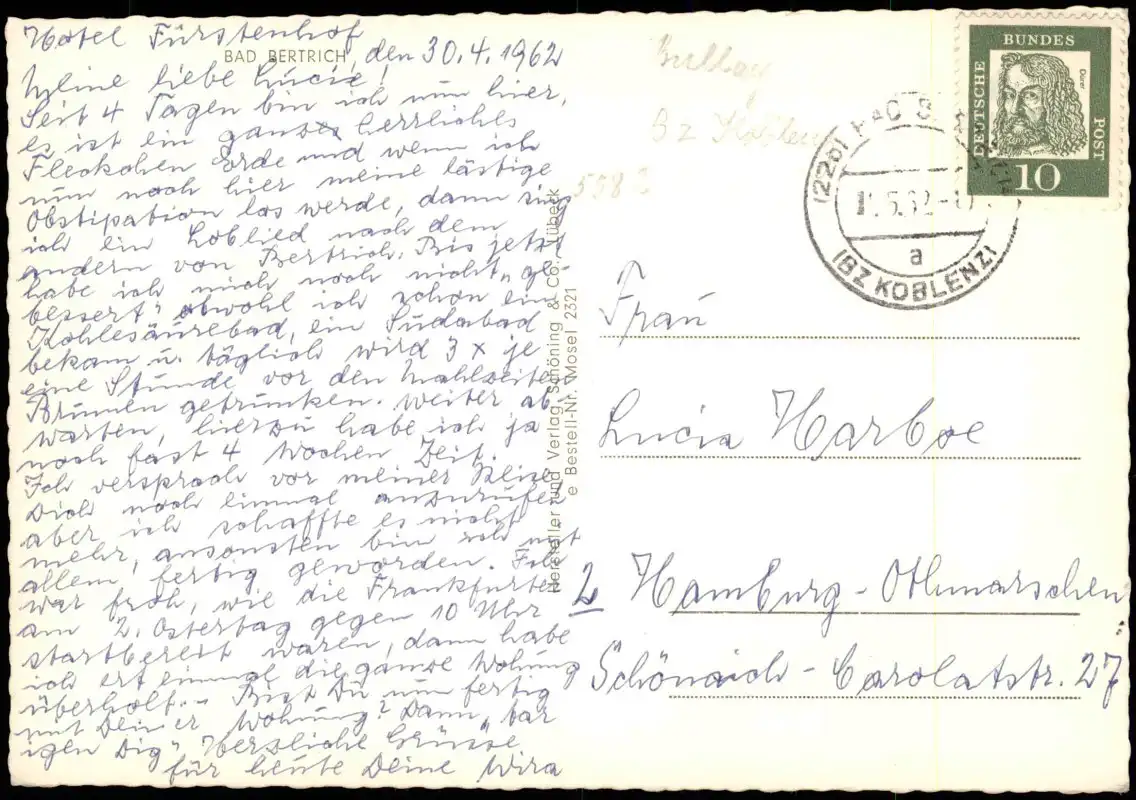 Hotel Fürstenhof
BAD BERTRICH, den 30.4.1962
Meine liebe Lucie!
Seit 4 Tagen bin ich nun hier,
es ist ein ganz herrliches
Fleckchen Erde und wenn ich
nun noch hier meine lästige
Obstipation los werde, dann sing
ich ein Loblied nach dem
andern von Bertrich. Bis jetzt
habe ich mich noch nicht „ge-
bessert" obwohl ich schon ein
Kohlesäurebad, ein Sudabad
bekam u. täglich wird 3 x je
eine Stunde vor den Mahlzeiten
Brunnen getrunken. Weiter ab-
warten, hierzu habe ich ja
noch fast 4 Wochen Zeit.
Ich versprach vor meiner Reise
Dich noch einmal anzurufen
aber ich schaffte es nicht
mehr, ansonsten bin ich mit
allem fertig geworden. Ich
war froh, wie die Frankfurter
am 2. Ostertag gegen 10 Uhr
startbereit waren, dann habe
ich erst einmal die ganze Wohnung
überholt. - Bist Du nun fertig
mit Deiner Wohnung? Dann „tar
igen Dig" Herzliche Grüsse
für heute Deine Wira
Hersteller und Verlag Schöning & Co., Lübeck
e Bestell-Nr. Mosel 2321
Bullay
Bz Koblenz
558
DEUTSCHE
BUNDES
POST
Dürer
10
(22b) BAD BERTRICH
.5.62-
a
(BZ KOBLENZ)
Frau
Lucia Harboe
2 Hamburg - Othmarschen
Schönaich-Carolatstr. 27